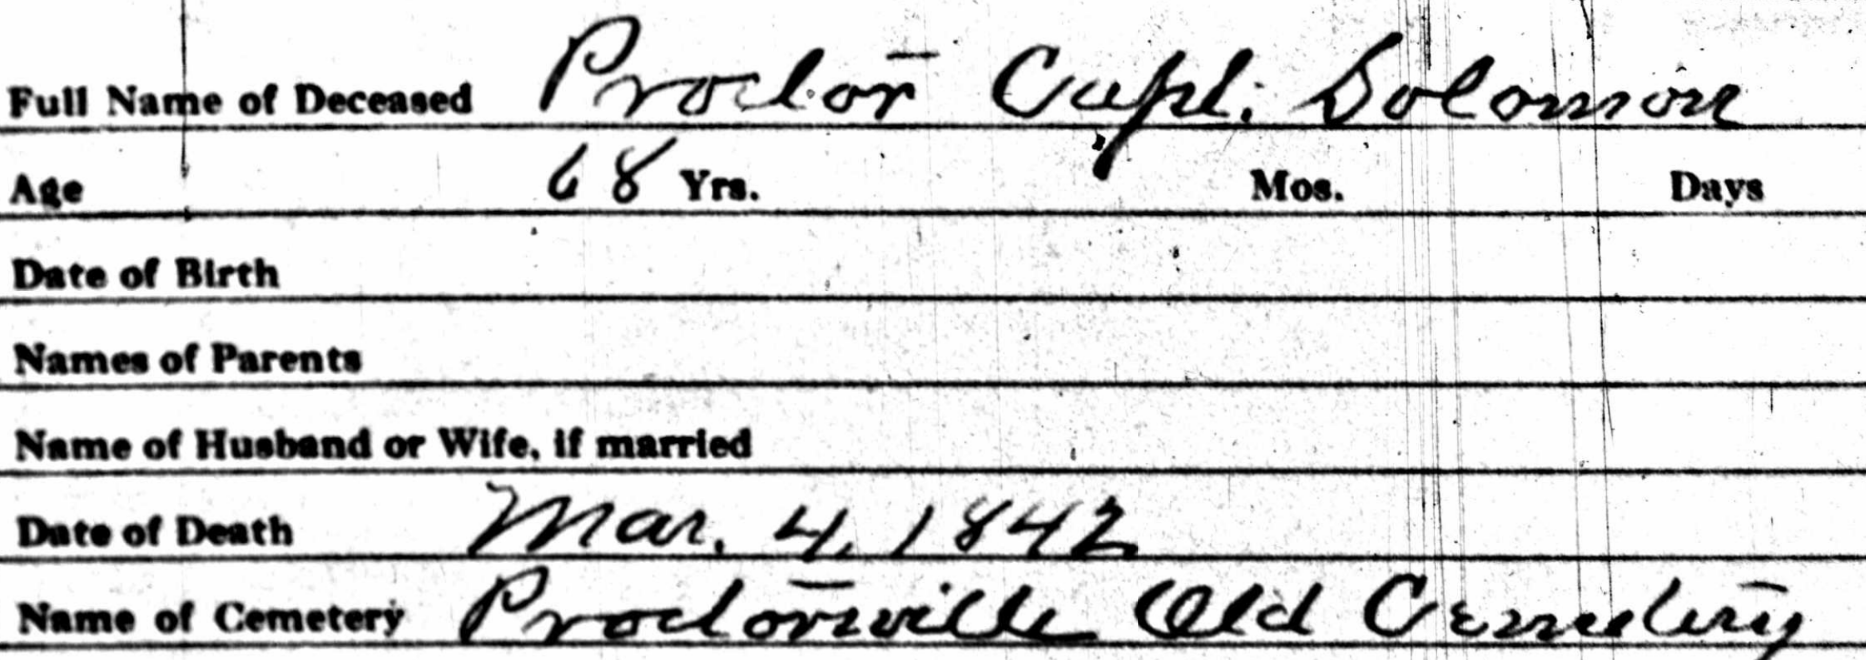 Full Name of Deceased Proctor Capt. Solomon
Age 68 Yrs. Mos. Days
Date of Birth
Names of Parents
Name of Husband or Wife, if married
Date of Death Mar. 4, 1842
Name of Cemetery Proctorsville Old Cemetery